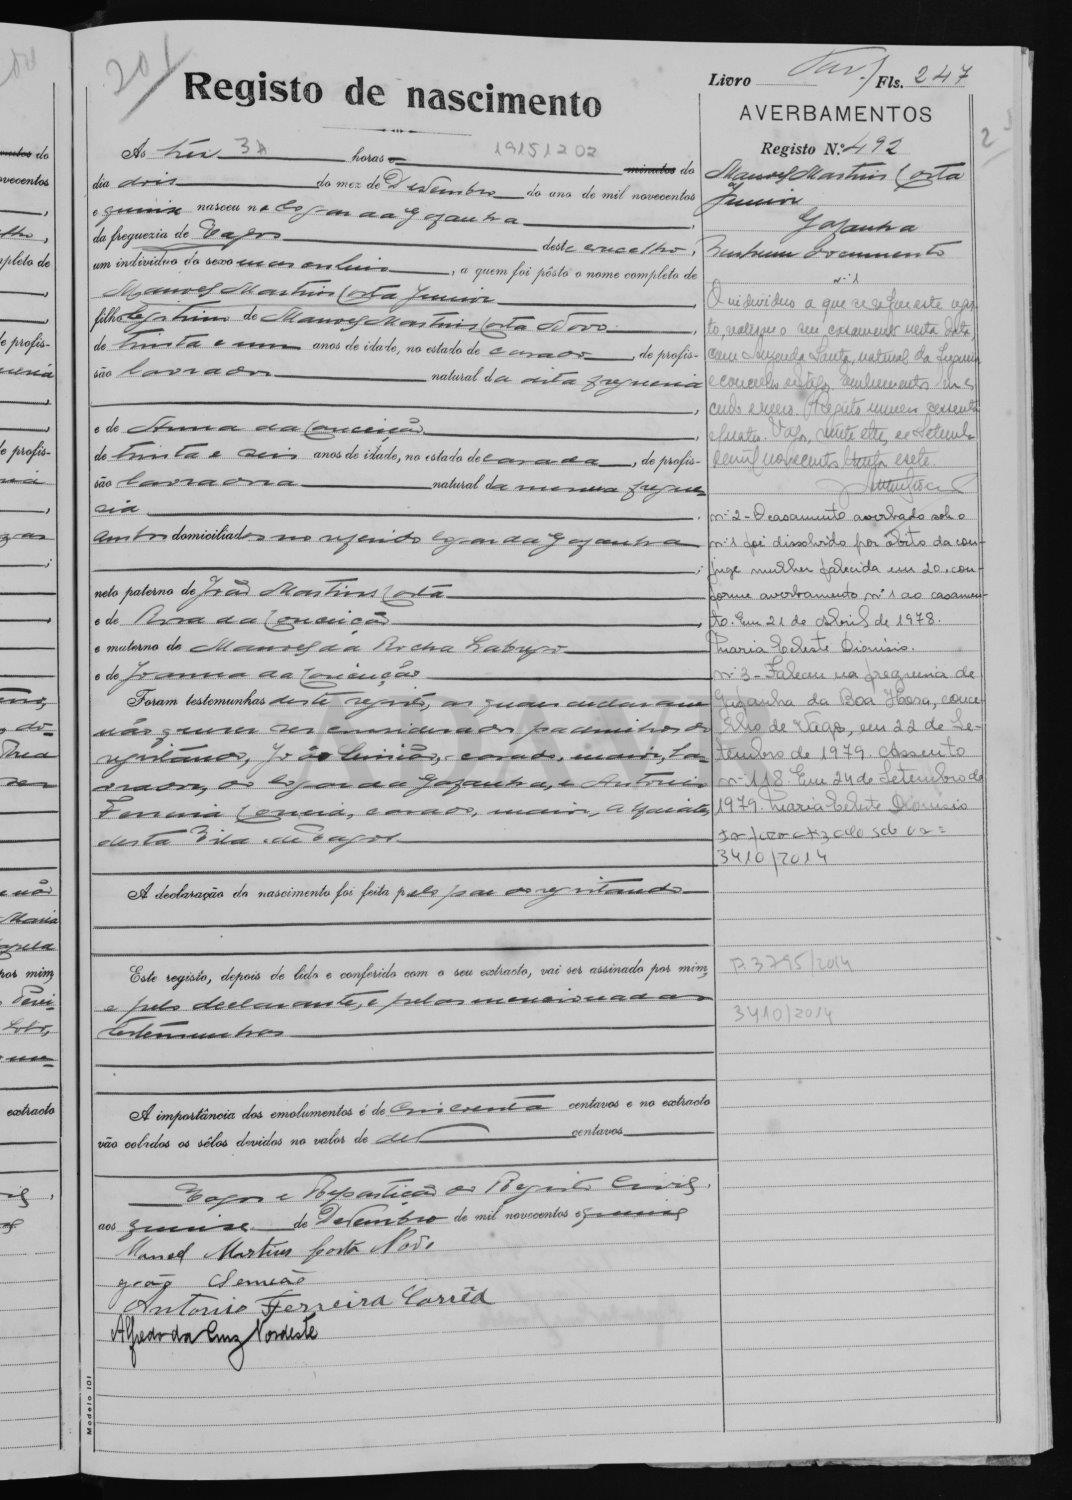 201
Registo de nascimento
Às três 3A horas e 19151202 minutos do
dia dois do mez de Dezembro do ano de mil novecentos
e quinze nasceu no logar da Gafanha,
da freguezia de Vagos deste concelho,
um individuo do sexo masculino, a quem foi pôsto o nome completo de
Manoel Martins Costa Junior
filho legitimo de Manoel Martins Costa Novo,
de trinta e um anos de idade, no estado de casado, de profis-
são lavrador natural da dita freguesia
,
e de Anna da Conceição,
de trinta e seis anos de idade, no estado de casada, de profis-
são lavradora natural da mesma fregue-
sia.
ambos domiciliados no referido logar da Gafanha
;
neto paterno de João Martins Costa
e de Rosa da Conceição,
e materno de Manoel da Rocha
e de Joanna da Conceição
Foram testemunhas deste registo, as quaes declararam
não querer ser considerados padrinhos do
registando, João Simião, casado, maior, la-
vrador, do logar da Gafanha, e Antonio
Ferreira Correia, casado, maior,
desta Vila de Vagos.
A declaração do nascimento foi feita pelo pae do registando
Este registo, depois de lido e conferido com o seu extracto, vai ser assinado por mim,
e pelo declarante, e pelas mencionadas
testemunhas
A importância dos emolumentos é de cincoenta centavos e no extracto
vão colados os sêlos devidos no valor de dez centavos
Vagos e Repartição do Registo Civil,
aos quinze de Dezembro de mil novecentos e quinze
Manoel Martins Costa Novo
João Semião
Antonio Ferreira Corrêa
Alfredo da Cruz Nordeste
Modelo 101
Livro Fls. 247
AVERBAMENTOS
Registo N.º 492
Manoel Martins Costa
Junior
Gafanha
Nenhum documento
nº 1
O individuo a que se refere este regis-
to, realizou o seu casamento nesta data,
com Santa, natural da freguesia
e concelho de Vagos.
Registo numero sessenta
e quatro. Vagos, vinte e sete de Setembro
de mil novecentos trinta e sete.
nº 2 - O casamento averbado sob o
nº 1 foi dissolvido por óbito da con-
juge mulher falecida em 20, con-
forme averbamento nº 1 ao casamen-
to. Em 21 de Abril de 1978.
Maria Celeste Dionisio.
nº 3 - Faleceu na freguesia de
Gafanha da Boa Hora, conce-
lho de Vagos, em 22 de Se-
tembro de 1979. Assento
nº 118. Em 24 de Setembro de
1979. Maria Celeste Dionisio
Informatizado sob o nº
3410/2014
P3795/2014
3410/2014
ADAV